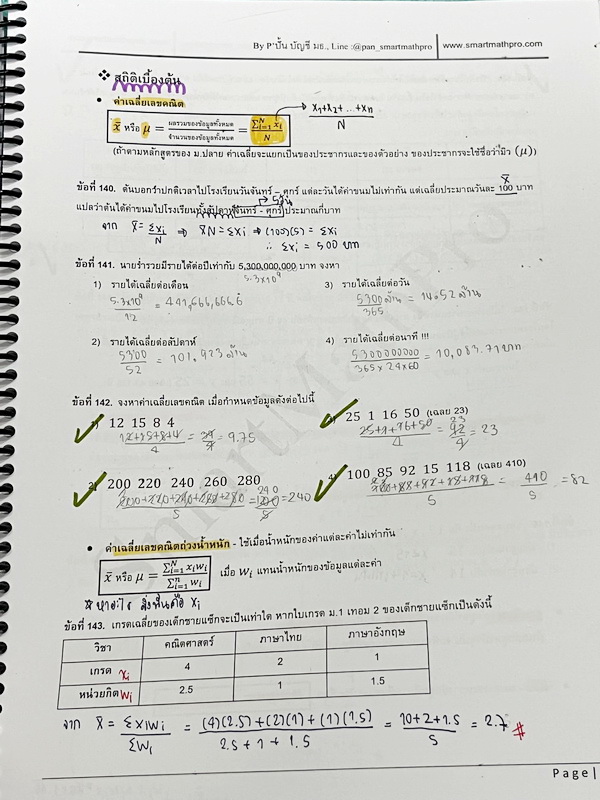 By P'ปั้น บัญชี มธ., Line :@pan_smartmathpro | www.smartmathpro.com
❖ สถิติเบื้องต้น
• ค่าเฉลี่ยเลขคณิต
x̄ หรือ μ = ผลรวมของข้อมูลทั้งหมด / จำนวนของข้อมูลทั้งหมด = Σᵢ₌₁ᴺ xᵢ / N → x₁+x₂+...+xₙ / N
(ถ้าตามหลักสูตรของ ม.ปลาย ค่าเฉลี่ยจะแยกเป็นของประชากรและของตัวอย่าง ของประชากรจะใช้ชื่อว่ามิว (μ))
5 วัน x̄
ข้อที่ 140. ต้นบอกว่าปกติเวลาไปโรงเรียนวันจันทร์ – ศุกร์ แต่ละวันได้ค่าขนมไม่เท่ากัน แต่เฉลี่ยประมาณวันละ 100 บาท
แปลว่าต้นได้ค่าขนมไปโรงเรียนทั้งสัปดาห์จันทร์ - ศุกร์ประมาณกี่บาท
จาก x̄ = Σxi / N ⇒ x̄N = Σxi ⇒ (100)(5) = Σxi
∴ Σxi = 500 บาท
ข้อที่ 141. นายร่ำรวยมีรายได้ต่อปีเท่ากับ 5,300,000,000 บาท จงหา
5.3×10⁹
1) รายได้เฉลี่ยต่อเดือน 3) รายได้เฉลี่ยต่อวัน
5.3×10⁹ / 12 = 441,666,666.6 5300ล้าน / 365 = 14.52 ล้าน
2) รายได้เฉลี่ยต่อสัปดาห์ 4) รายได้เฉลี่ยต่อนาที !!!
5300 / 52 = 101.923 ล้าน 5300000000 / 365×24×60 = 10,083.71 บาท
ข้อที่ 142. จงหาค่าเฉลี่ยเลขคณิต เมื่อกำหนดข้อมูลดังต่อไปนี้
1) 12 15 8 4 3) 25 1 16 50 (เฉลย 23)
12+15+8+4 / 4 = 39 / 4 = 9.75 25+1+16+50 / 4 = 92 / 4 = 23
2) 200 220 240 260 280 4) 100 85 92 15 118 (เฉลย 410)
200+220+240+260+280 / 5 = 1200 / 5 = 240 = 410 / 5 = 82
• ค่าเฉลี่ยเลขคณิตถ่วงน้ำหนัก - ใช้เมื่อน้ำหนักของค่าแต่ละค่าไม่เท่ากัน
x̄ หรือ μ = Σᵢ₌₁ᴺ xᵢwᵢ / Σᵢ₌₁ⁿ wᵢ เมื่อ wᵢ แทนน้ำหนักของข้อมูลแต่ละค่า
* หาอะไร สิ่งนั้นคือ xi
ข้อที่ 143. เกรดเฉลี่ยของเด็กชายแซ็กจะเป็นเท่าใด หากใบเกรด ม.1 เทอม 2 ของเด็กชายแซ็กเป็นดังนี้
วิชา คณิตศาสตร์ ภาษาไทย ภาษาอังกฤษ
เกรด xi 4 2 1
หน่วยกิต wi 2.5 1 1.5
จาก x̄ = Σxiwi / Σwi = (4)(2.5)+(2)(1)+(1)(1.5) / 2.5+1+1.5 = 10+2+1.5 / 5 = 2.7 #
Page |